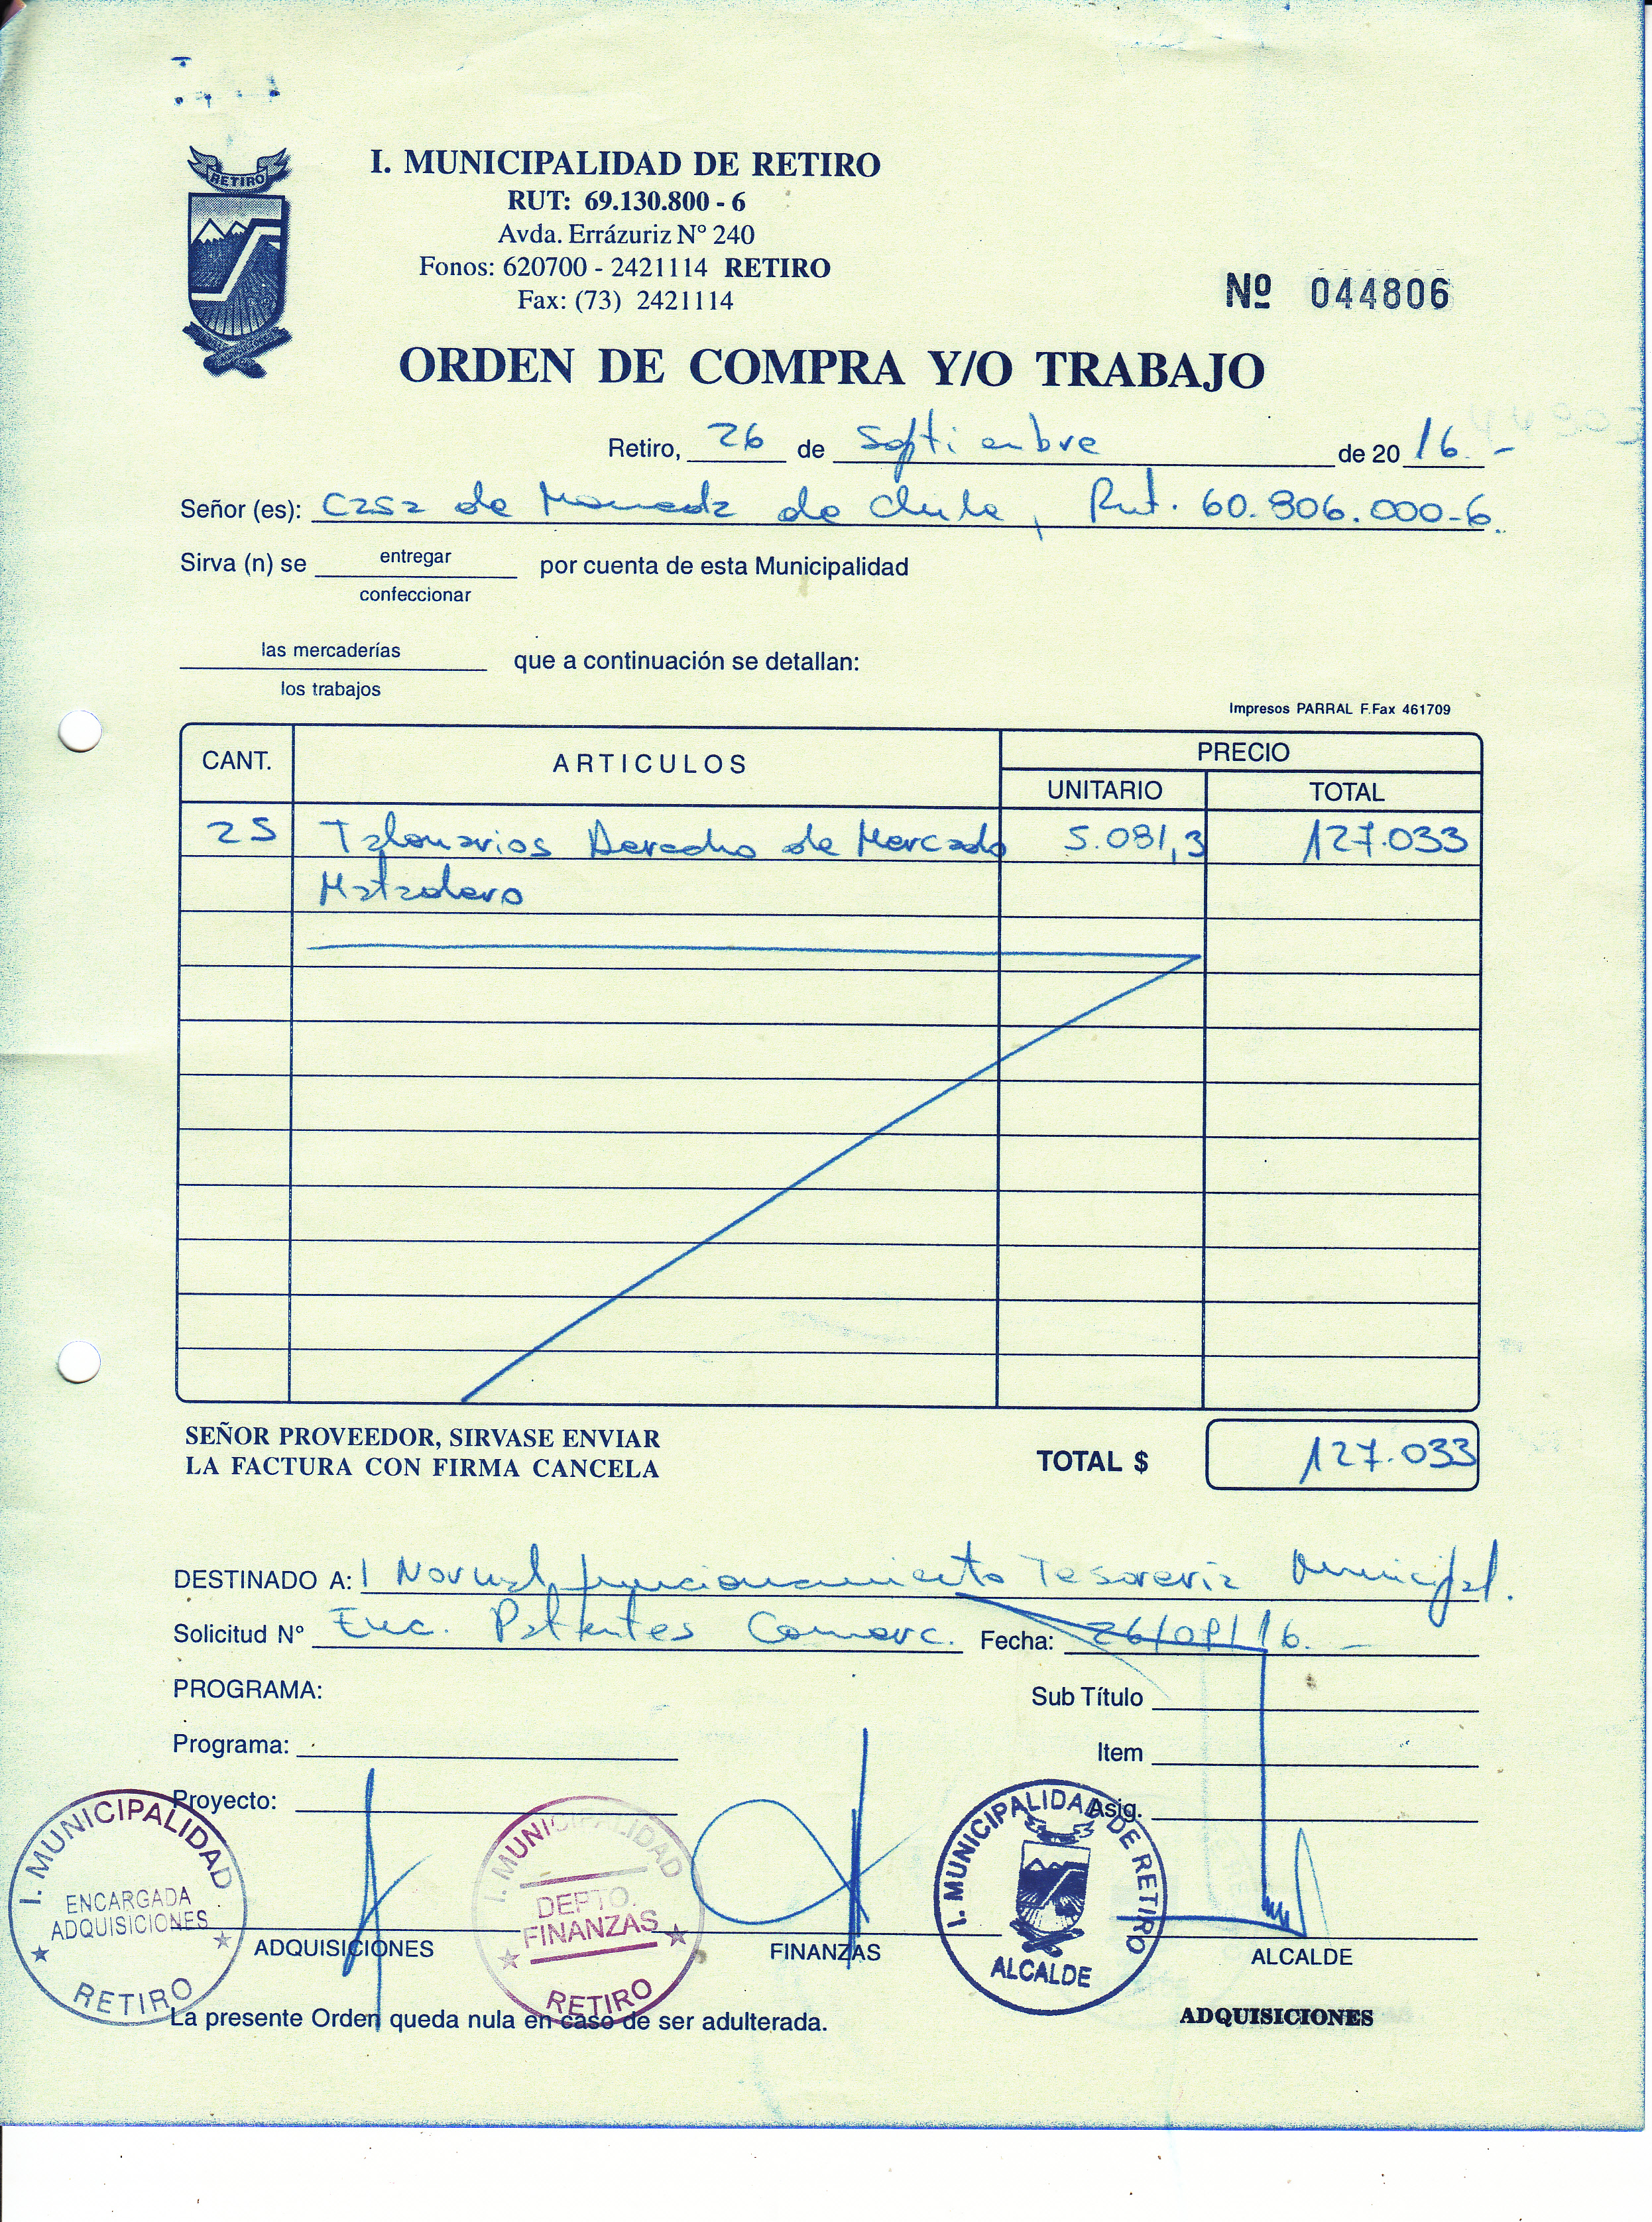 RETIRO
I. MUNICIPALIDAD DE RETIRO
RUT: 69.130.800 - 6
Avda. Errázuriz Nº 240
Fonos: 620700 - 2421114 RETIRO
Fax: (73) 2421114
Nº 044806
ORDEN DE COMPRA Y/O TRABAJO
Retiro, 26 de Septiembre de 20 16.-
Señor (es): Casa de Moneda de Chile, Rut. 60.806.000-6.
Sirva (n) se entregar por cuenta de esta Municipalidad
confeccionar
las mercaderías que a continuación se detallan:
los trabajos
Impresos PARRAL F.Fax 461709
CANT. ARTICULOS PRECIO
UNITARIO TOTAL
25 Talonarios Derecho de Mercado 5.081,3 127.033
Matadero
SEÑOR PROVEEDOR, SIRVASE ENVIAR
LA FACTURA CON FIRMA CANCELA
TOTAL $ 127.033
DESTINADO A: Normal funcionamiento Tesoreria Municipal.
Solicitud Nº Enc. Patentes Comerc. Fecha: 26/09/16.-
PROGRAMA: Sub Título
Programa: Item
Proyecto: Asig.
I. MUNICIPALIDAD
ENCARGADA
ADQUISICIONES
RETIRO
I. MUNICIPALIDAD
DEPTO.
FINANZAS
RETIRO
I. MUNICIPALIDAD DE RETIRO
ALCALDE
ADQUISICIONES FINANZAS ALCALDE
La presente Orden queda nula en caso de ser adulterada.
ADQUISICIONES